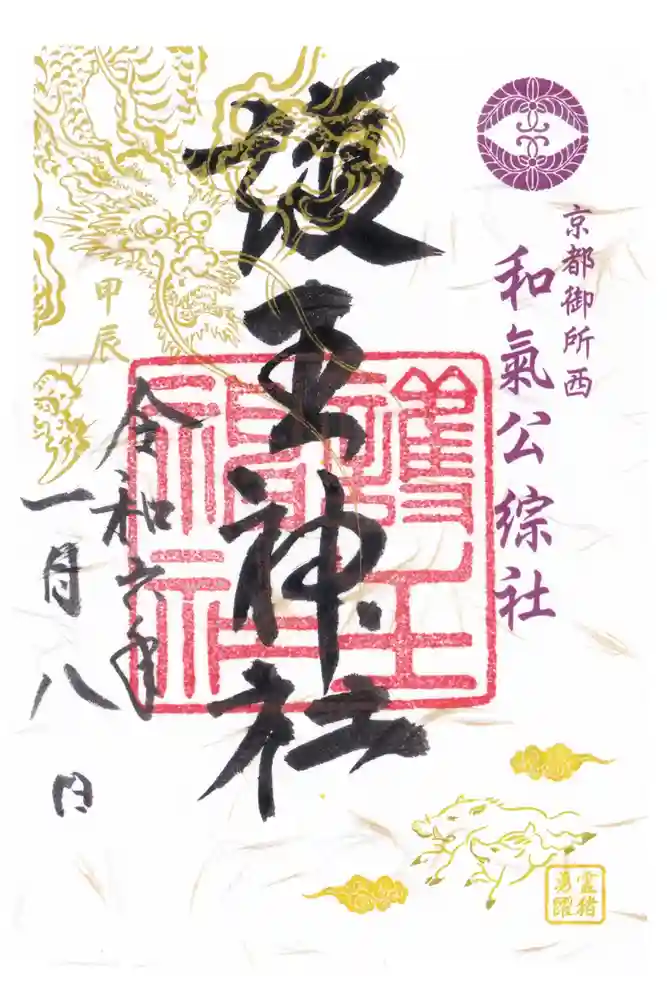 京都御所西
和氣公綜社
護王神社
護王神社
甲辰
令和六年
一月八日
靈猪
勇躍